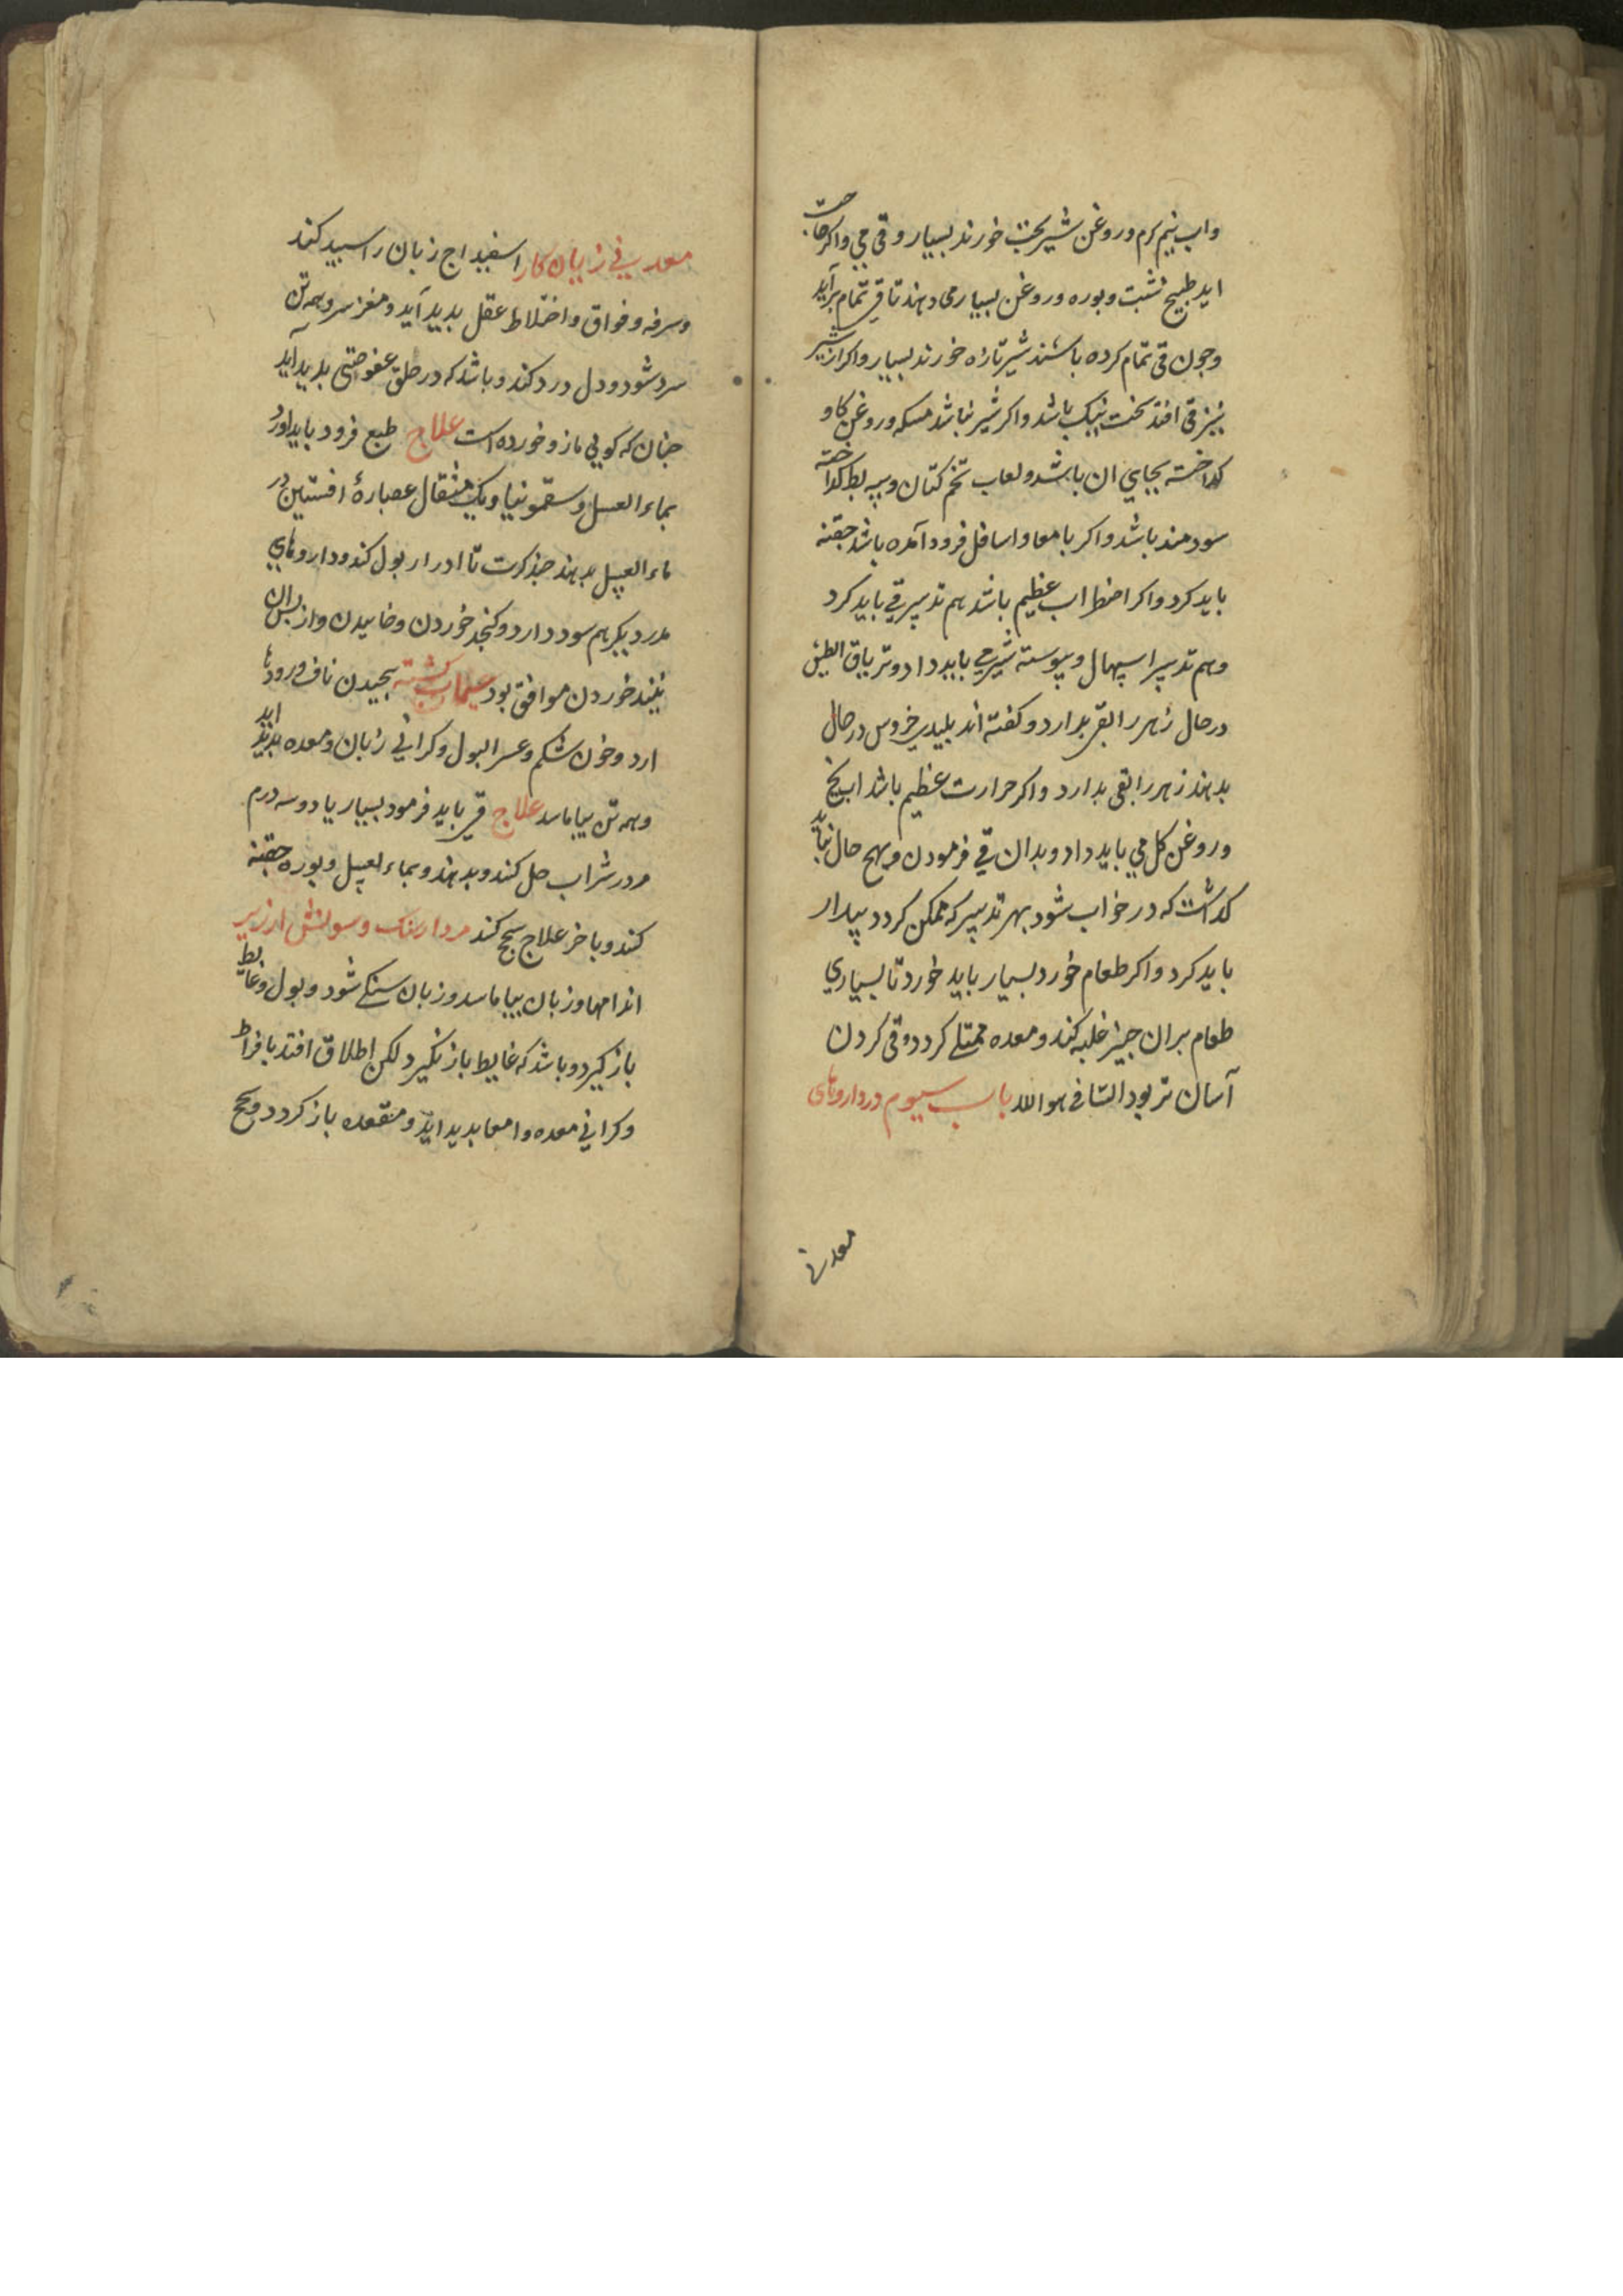 واب نیم کرم وروغن شیربخت خورند بسیار وقی می واکر حاجت
اید طبیخ شبت وبوره وروغن بسیار می دهند تا قی تمام برآید
وجون قی تمام کرده باشند شیر تازه خورند بسیار واکر از شیر
نیز قی افتد سخت نیک باشد واکر شیر نباشد مسکه وروغن کاو
کداخته بجای ان باشد ولعاب تخم کتان وپیه بط کداخته
سودمند باشد واکر بامعا واسافل فرود آمده باشد حقنه
باید کرد واکر اضطراب عظیم باشد هم تدبیر قی باید کرد
وهم تدبیر اسهال وپیوسته شیر می باید داد وتریاق الطین
در حال زهر را بقی بدارد وکفته اند پلیدی خروس در حال
بدهند زهر را بقی بدارد واکر حرارت عظیم باشد اب یخ
وروغن کل می باید داد وبدان قی فرمودن وبهیچ حال نباید
کداشت که در خواب شود بهر تدبیر که ممکن کردد بیدار
باید کرد واکر طعام خورد بسیار باید خورد تا بسیاری
طعام بران جیز غلبه کند ومعده ممتلی کردد وقی کردن
آسان تر بود الشافی هو الله باب سیوم در داروهای
معدنی
معدنی زیان کار اسفیداج زبان را سپید کند
وسرفه وفواق واختلاط عقل بدید آید ومغز سر وهمه تن
سرد شود ودل درد کند وباشد که در حلق عفوصتی بدید اید
جنان که کویی مازو خورده است علاج طبع فرود باید اورد
بماء العسل وسقمونیا ویک مثقال عصارهٔ افسنتین در
ماء العسل بدهند جند کرت تا ادرار بول کند وداروهای
مدر دیکر هم سود دارد وکنجد خوردن وخاییدن واز پس ان
نبیذ خوردن موافق بود سیماب کشته بیجیدن ناف ورودها
ارد وخون شکم وعسر البول وکرانی زبان ومعده بدید اید
وهمه تن بیاماسد علاج قی باید فرمود بسیار یا دو سه درم
مر در شراب حل کنند وبدهند وبماء العسل وبوره حقنه
کنند وباخر علاج سحج کنند مردارسنک وسونش ارزیز
اندامها وزبان بیاماسد وزبان سنکی شود وبول وغایط
باز کیرد وباشد که غایط باز نکیرد لکن اطلاق افتد بافراط
وکرانی معده وامعا بدید اید ومقعده باز کردد وسحج